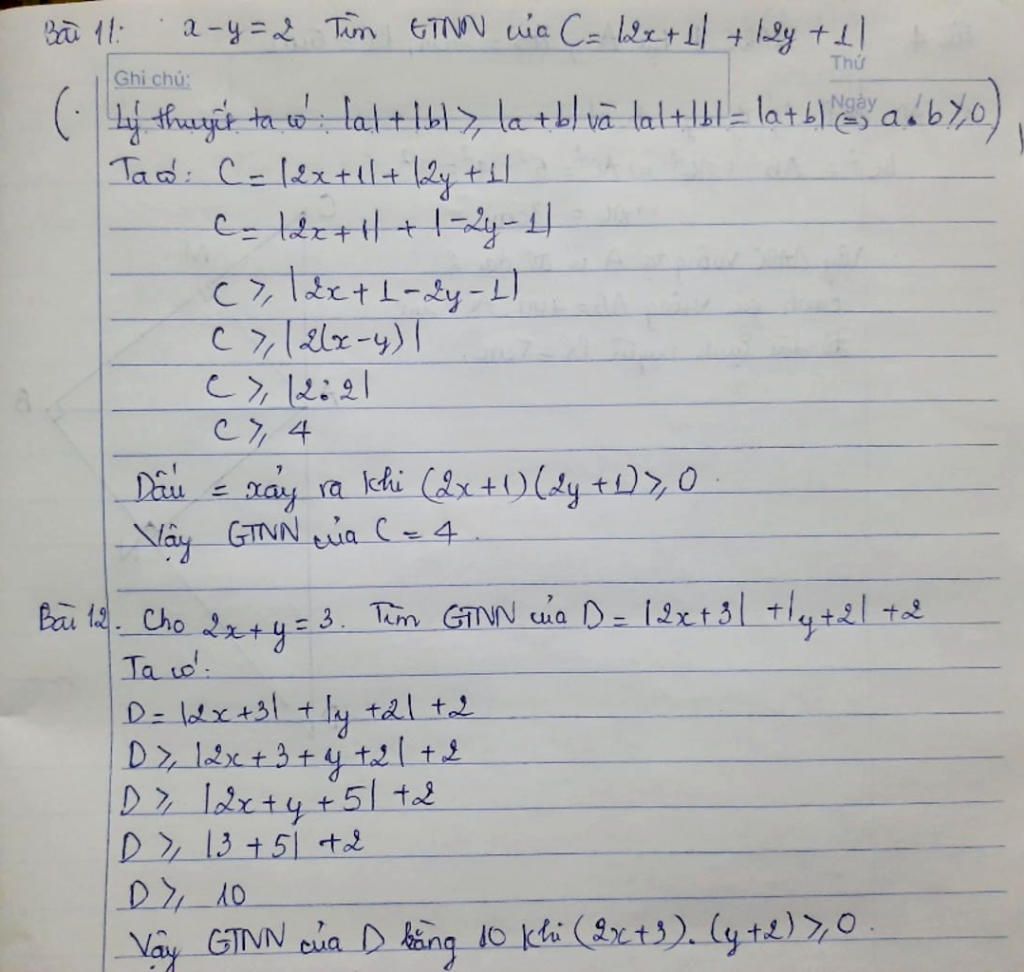 Bài 11: x-y=2 Tìm GTNN của C= |2x+1| + |2y+1|
Ghi chú:
Thứ
Ngày
(. Lý thuyết ta có: |a|+|b| ⩾ |a+b| và |a|+|b| = |a+b| (=) a.b ⩾ 0)
Ta có: C = |2x+1| + |2y+1|
C = |2x+1| + |-2y-1|
C ⩾ |2x+1-2y-1|
C ⩾ |2(x-y)|
C ⩾ |2.2|
C ⩾ 4
Dấu = xảy ra khi (2x+1)(2y+1) ⩾ 0
Vậy GTNN của C = 4.
Bài 12. Cho 2x+y = 3. Tìm GTNN của D = |2x+3| + |y+2| + 2
Ta có:
D = |2x+3| + |y+2| + 2
D ⩾ |2x+3+y+2| + 2
D ⩾ |2x+y+5| + 2
D ⩾ |3+5| + 2
D ⩾ 10
Vậy GTNN của D bằng 10 khi (2x+3).(y+2) ⩾ 0.